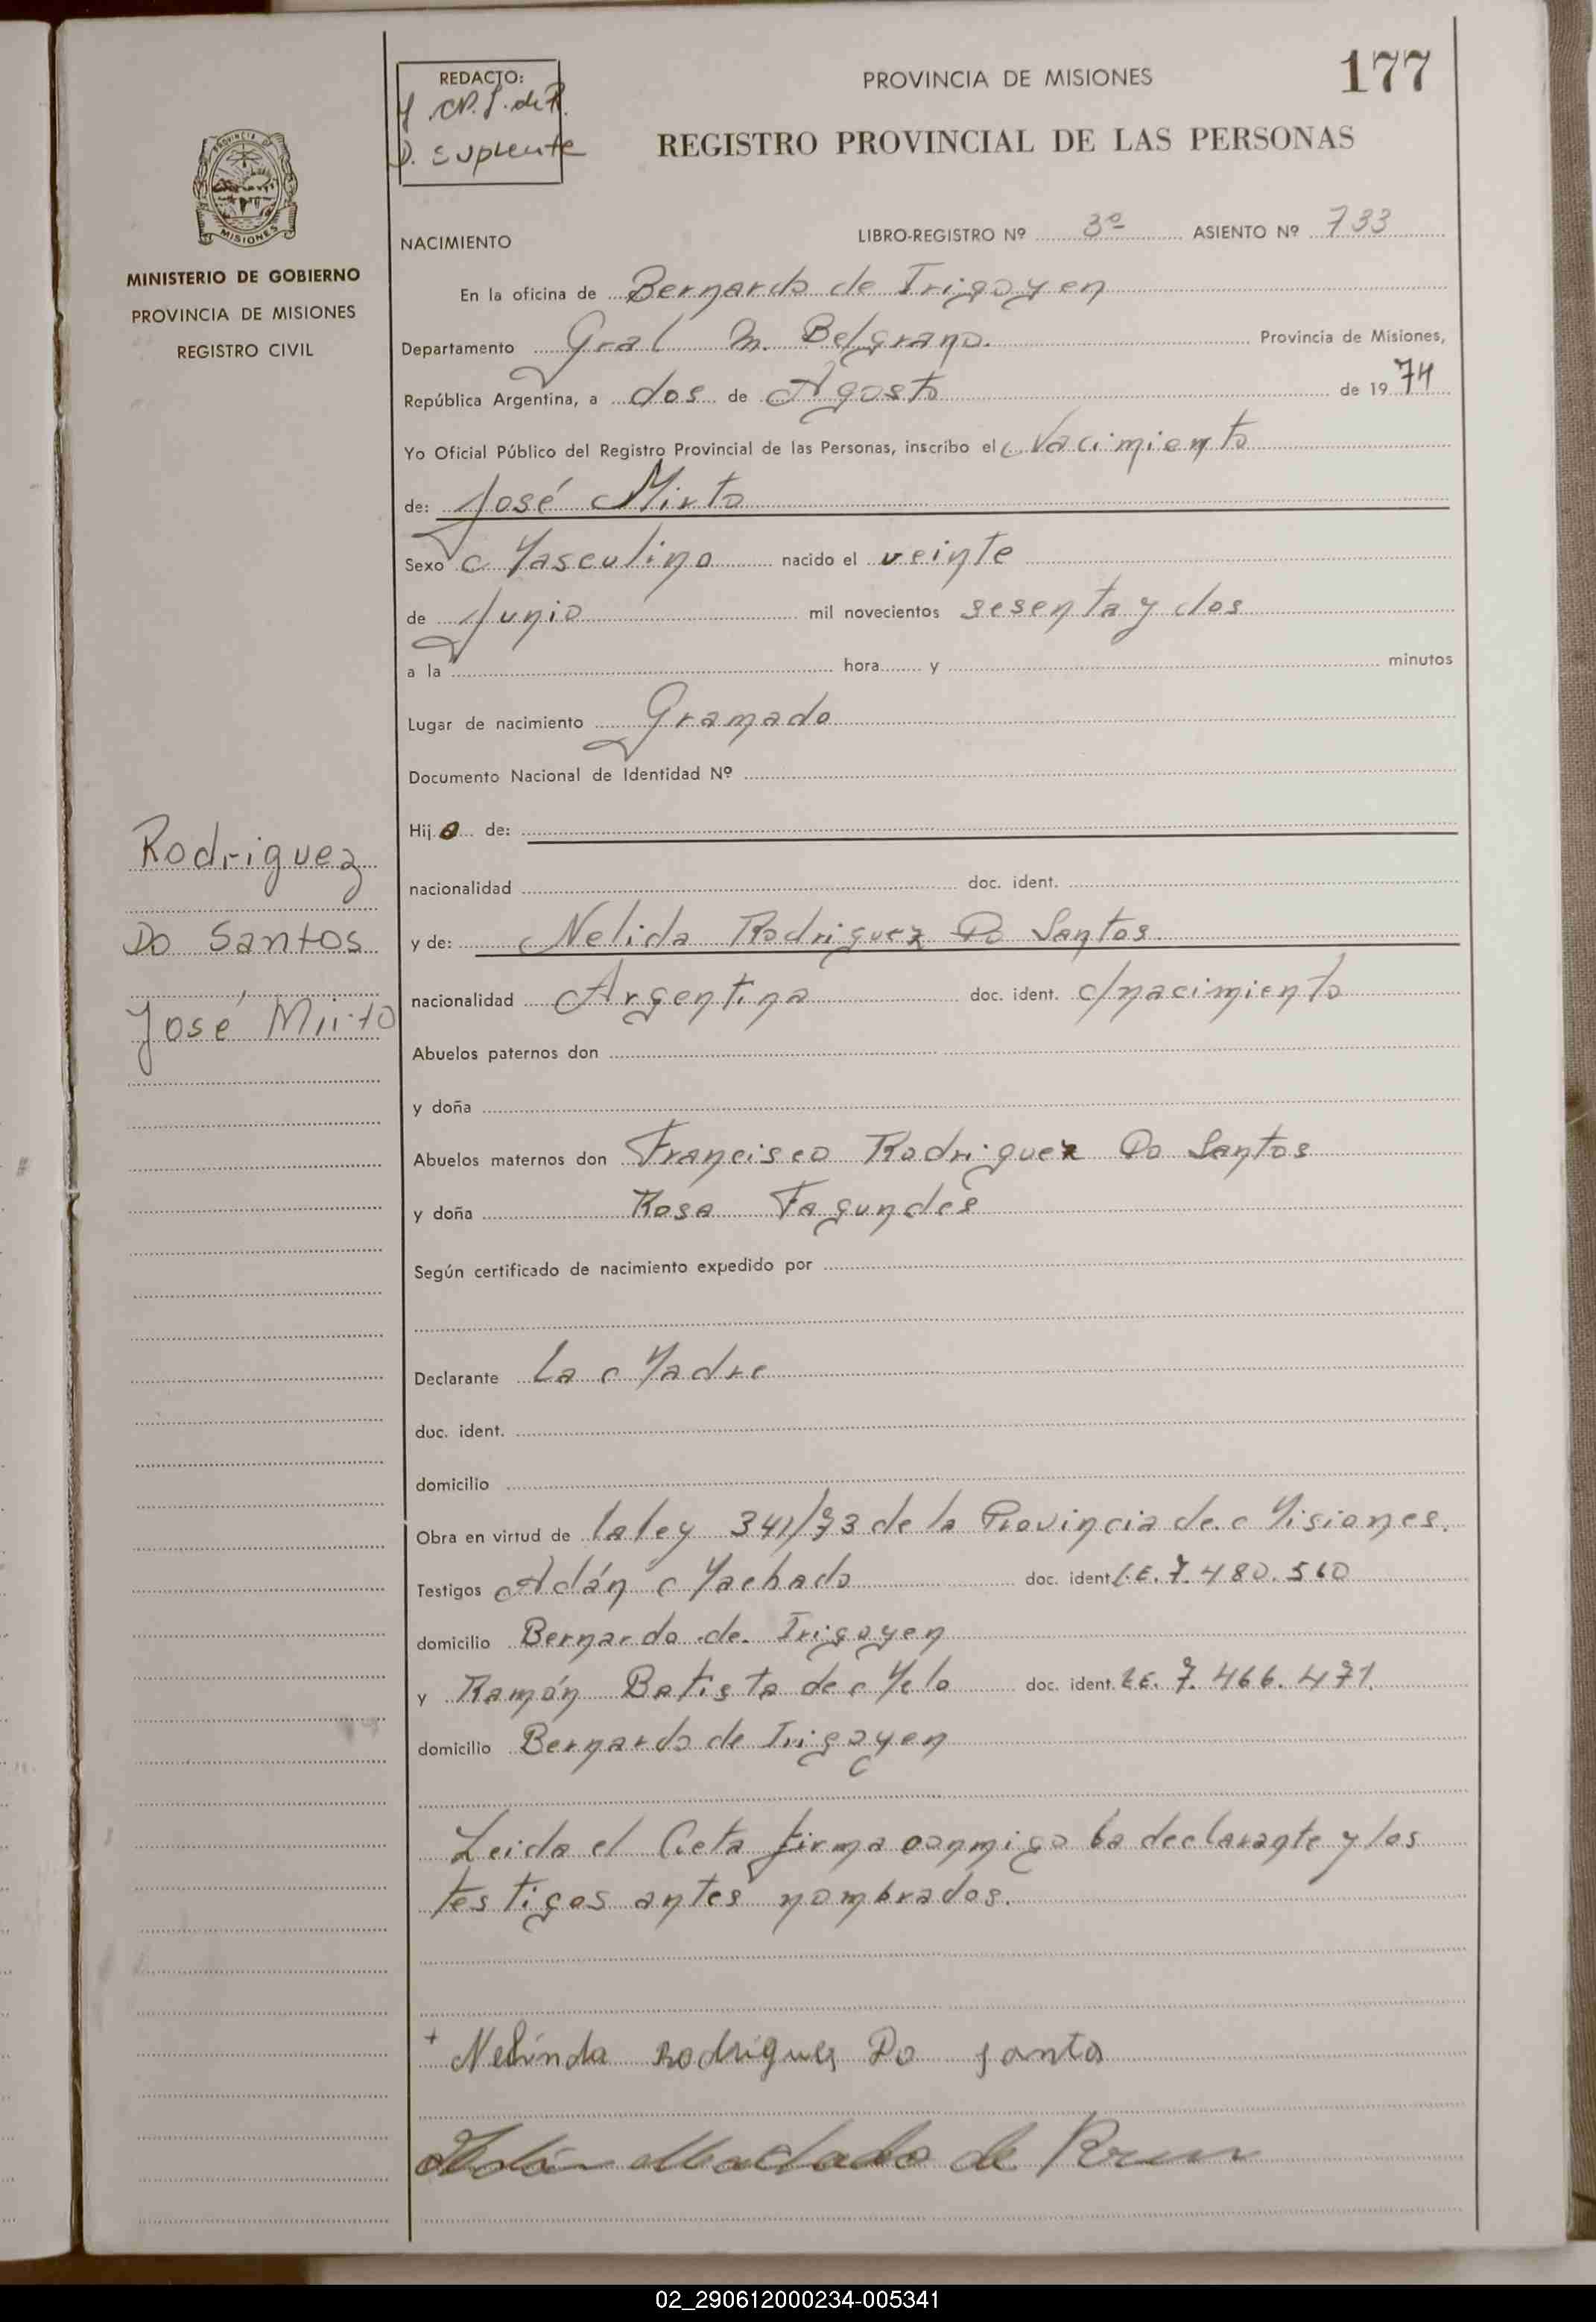 177
REDACTO:
D. Suplente
PROVINCIA DE MISIONES
REGISTRO PROVINCIAL DE LAS PERSONAS
PROVINCIA DE MISIONES
MINISTERIO DE GOBIERNO
PROVINCIA DE MISIONES
REGISTRO CIVIL
NACIMIENTO
LIBRO-REGISTRO Nº 3º ASIENTO Nº 733
En la oficina de Bernardo de Irigoyen
Departamento Gral M. Belgrano. Provincia de Misiones,
República Argentina, a dos de Agosto de 1974
Yo Oficial Público del Registro Provincial de las Personas, inscribo el Nacimiento
de: José Mirto
Sexo Masculino nacido el veinte
de Junio mil novecientos sesenta y dos
a la hora y minutos
Lugar de nacimiento Gramado
Documento Nacional de Identidad Nº
Hijo de:
Rodriguez
nacionalidad doc. ident.
Do Santos
y de: Nelida Rodriguez Do Santos.
nacionalidad Argentina doc. ident. c/nacimiento
José Mirto
Abuelos paternos don
y doña
Abuelos maternos don Francisco Rodriguez Do Santos
y doña Rosa Fagundes
Según certificado de nacimiento expedido por
Declarante La Madre
doc. ident.
domicilio
Obra en virtud de la ley 341/73 de la Provincia de Misiones.
Testigos Adán Machado doc. ident L.E. 7.480.560
domicilio Bernardo de Irigoyen
y Ramón Batista de Melo doc. ident. L.E. 7.466.471.
domicilio Bernardo de Irigoyen
Leida el Acta firma conmigo la declarante y los
testigos antes nombrados.
+ Nelinda Rodrigues Do santo
Adán Machado de
02_290612000234-005341